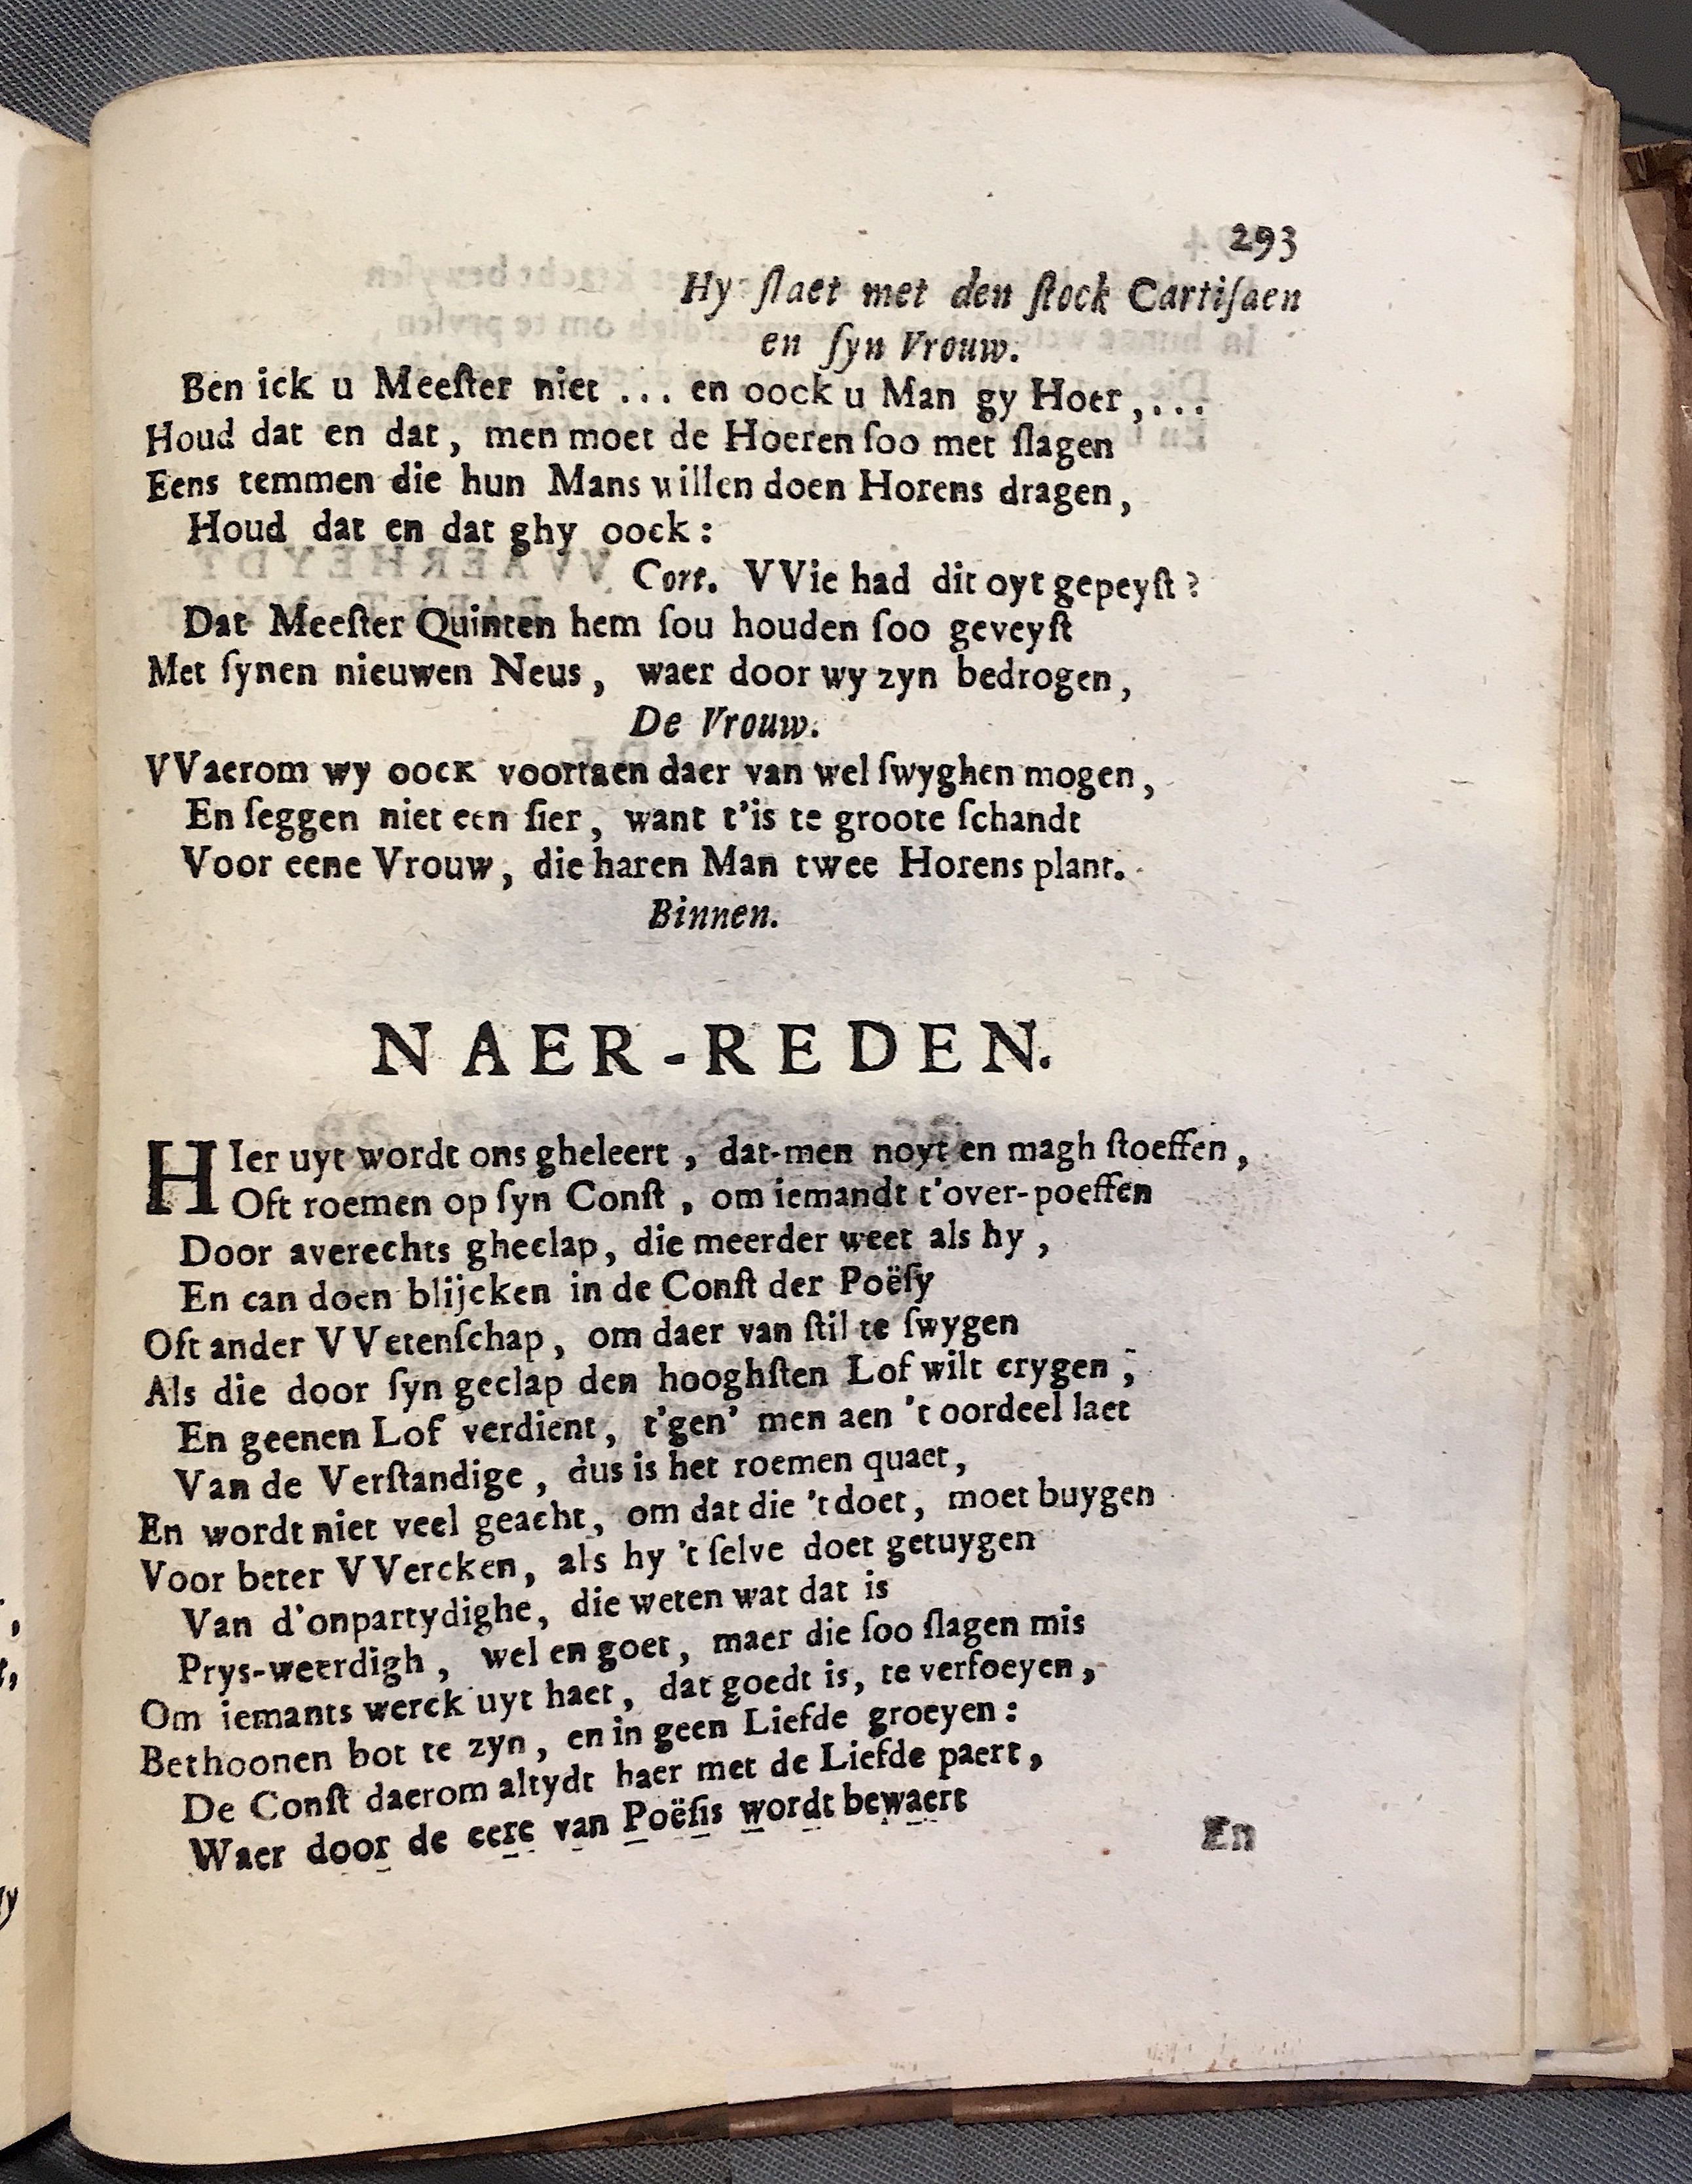 293
Hy ſlaet met den ſtock Cartiſaen
en ſyn Vrouw.
Ben ick u Meeſter niet ... en oock u Man gy Hoer,...
Houd dat en dat, men moet de Hoeren ſoo met ſlagen
Eens temmen die hun Mans willen doen Horens dragen,
Houd dat en dat ghy oock:
Cort. VVie had dit oyt gepeyſt?
Dat Meeſter Quinten hem ſou houden ſoo geveyſt
Met ſynen nieuwen Neus, waer door wy zyn bedrogen,
De Vrouw.
VVaerom wy oock voortaen daer van wel ſwyghen mogen,
En ſeggen niet een ſier, want t'is te groote ſchandt
Voor eene Vrouw, die haren Man twee Horens plant.
Binnen.
NAER-REDEN.
HIer uyt wordt ons gheleert, dat-men noyt en magh ſtoeffen,
Oft roemen op ſyn Conſt, om iemandt t'over-poeffen
Door averechts gheclap, die meerder weet als hy,
En can doen blijcken in de Conſt der Poëſy
Oft ander VVetenſchap, om daer van ſtil te ſwygen
Als die door ſyn geclap den hooghſten Lof wilt crygen;
En geenen Lof verdient, t'gen' men aen 't oordeel laet
Van de Verſtandige, dus is het roemen quaet,
En wordt niet veel geacht, om dat die 't doet, moet buygen
Voor beter VVercken, als hy 't ſelve doet getuygen
Van d'onpartydighe, die weten wat dat is
Prys-weerdigh, wel en goet, maer die ſoo ſlagen mis
Om iemants werck uyt haet, dat goedt is, te verfoeyen,
Bethoonen bot te zyn, en in geen Liefde groeyen:
De Conſt daerom altydt haer met de Liefde paert,
Waer door de eere van Poëſis wordt bewaert
En